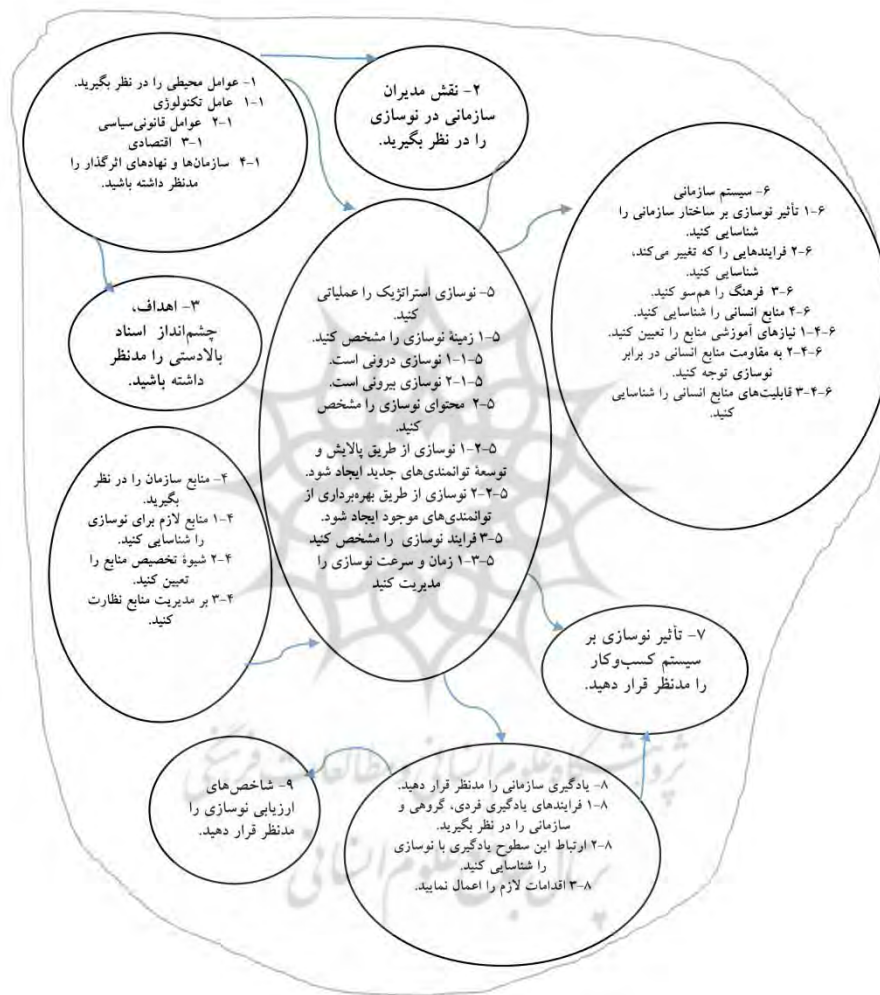 ۱- عوامل محیطی را در نظر بگیرید.
۱-۱ عامل تکنولوژی
۲-۱ عوامل قانونی‌سیاسی
۳-۱ اقتصادی
۴-۱ سازمان‌ها و نهادهای اثرگذار را
مدنظر داشته باشید.
۲- نقش مدیران
سازمانی در نوسازی
را در نظر بگیرید.
۳- اهداف،
چشم‌انداز اسناد
بالادستی را مدنظر
داشته باشید.
۴- منابع سازمان را در نظر
بگیرید.
۱-۴ منابع لازم برای نوسازی
را شناسایی کنید.
۲-۴ شیوهٔ تخصیص منابع را
تعیین کنید.
۳-۴ بر مدیریت منابع نظارت
کنید.
۵- نوسازی استراتژیک را عملیاتی
کنید.
۱-۵ زمینهٔ نوسازی را مشخص کنید.
۱-۱-۵ نوسازی درونی است.
۲-۱-۵ نوسازی بیرونی است.
۲-۵ محتوای نوسازی را مشخص
کنید.
۱-۲-۵ نوسازی از طریق پالایش و
توسعهٔ توانمندی‌های جدید ایجاد شود.
۲-۲-۵ نوسازی از طریق بهره‌برداری از
توانمندی‌های موجود ایجاد شود.
۳-۵ فرایند نوسازی را مشخص کنید
۱-۳-۵ زمان و سرعت نوسازی را
مدیریت کنید
۶- سیستم سازمانی
۱-۶ تأثیر نوسازی بر ساختار سازمانی را
شناسایی کنید.
۲-۶ فرایندهایی را که تغییر می‌کند،
شناسایی کنید.
۳-۶ فرهنگ را هم‌سو کنید.
۴-۶ منابع انسانی را شناسایی کنید.
۱-۴-۶ نیازهای آموزشی منابع را تعیین کنید.
۲-۴-۶ به مقاومت منابع انسانی در برابر
نوسازی توجه کنید.
۳-۴-۶ قابلیت‌های منابع انسانی را شناسایی
کنید.
۷- تأثیر نوسازی بر
سیستم کسب‌وکار
را مدنظر قرار دهید.
۸- یادگیری سازمانی را مدنظر قرار دهید.
۱-۸ فرایندهای یادگیری فردی، گروهی و
سازمانی را در نظر بگیرید.
۲-۸ ارتباط این سطوح یادگیری با نوسازی
را شناسایی کنید.
۳-۸ اقدامات لازم را اعمال نمایید.
۹- شاخص‌های
ارزیابی نوسازی را
مدنظر قرار دهید.
پژوهشگاه علوم انسانی و مطالعات فرهنگی
پرتال جامع علوم انسانی